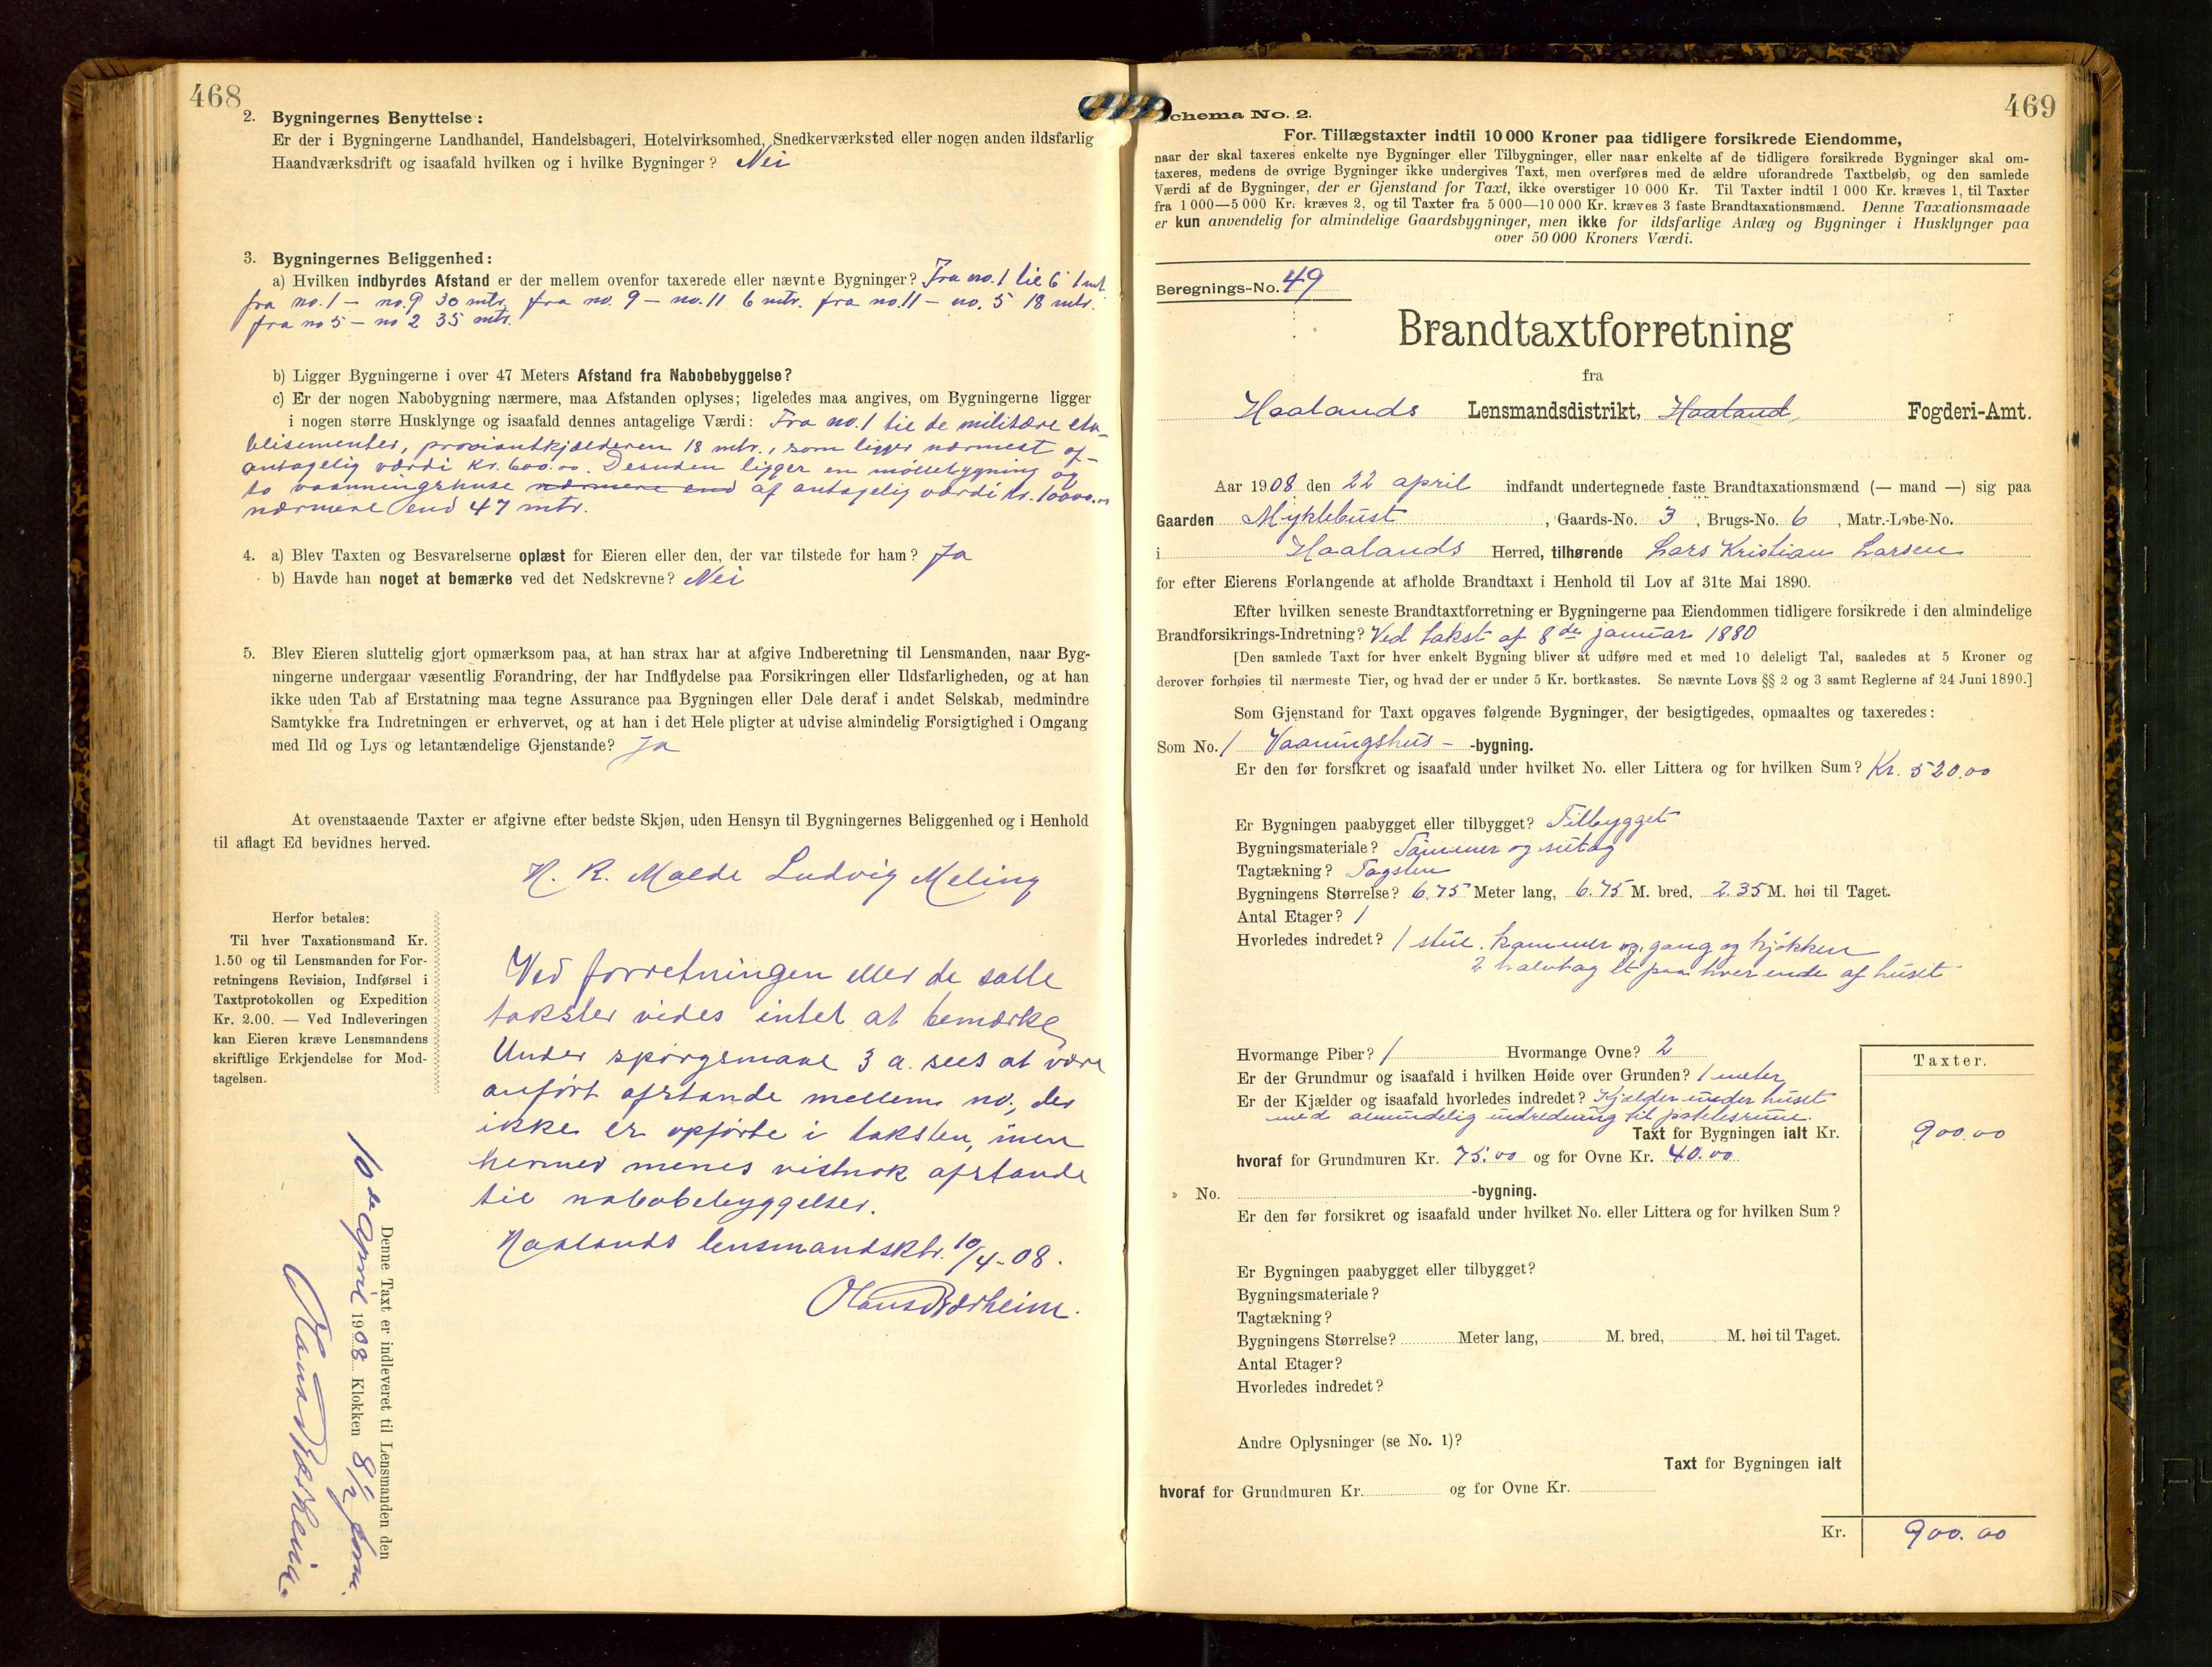 468
2. Bygningernes Benyttelse:
Er der i Bygningerne Landhandel, Handelsbageri, Hotelvirksomhed, Snedkerværksted eller nogen anden ildsfarlig
Haandværksdrift og isaafald hvilken og i hvilke Bygninger? Nei
3. Bygningernes Beliggenhed:
a) Hvilken indbyrdes Afstand er der mellem ovenfor taxerede eller nævnte Bygninger? Fra no. 1 til 6 1 mt
fra no. 1 – no. 9 30 mtr. fra no. 9 – no. 11 6 mtr. fra no. 11 – no. 5 18 mtr.
fra no 5 – no 2 35 mtr.
b) Ligger Bygningerne i over 47 Meters Afstand fra Nabobebyggelse?
c) Er der nogen Nabobygning nærmere, maa Afstanden oplyses; ligeledes maa angives, om Bygningerne ligger
i nogen større Husklynge og isaafald dennes antagelige Værdi: Fra no. 1 til de militære eta-
blisementer, proviantkjælderen 18 mtr., som ligger nærmest af
antagelig værdi Kr. 600.00. Desuden ligger en møllebygning og
to vaaningshuse nærmere end af antagelig værdi kr. 10000.00
nærmere end 47 mtr.
4. a) Blev Taxten og Besvarelserne oplæst for Eieren eller den, der var tilstede for ham? Ja
b) Havde han noget at bemærke ved det Nedskrevne? Nei
5. Blev Eieren sluttelig gjort opmærksom paa, at han strax har at afgive Indberetning til Lensmanden, naar Byg-
ningerne undergaar væsentlig Forandring, der har Indflydelse paa Forsikringen eller Ildsfarligheden, og at han
ikke uden Tab af Erstatning maa tegne Assurance paa Bygningen eller Dele deraf i andet Selskab, medmindre
Samtykke fra Indretningen er erhvervet, og at han i det Hele pligter at udvise almindelig Forsigtighed i Omgang
med Ild og Lys og letantændelige Gjenstande? Ja
At ovenstaaende Taxter er afgivne efter bedste Skjøn, uden Hensyn til Bygningernes Beliggenhed og i Henhold
til aflagt Ed bevidnes herved.
N. R. Malde Ludvig Meling
Herfor betales:
Til hver Taxationsmand Kr.
1.50 og til Lensmanden for For-
retningens Revision, Indførsel i
Taxtprotokollen og Expedition
Kr. 2.00. — Ved Indleveringen
kan Eieren kræve Lensmandens
skriftlige Erkjendelse for Mod-
tagelsen.
Ved forretningen eller de satte
takster vides intet at bemærke
Under spørgsmaal 3 a. sees at være
anført afstande mellem no., der
ikke er opførte i taksten, men
hermed menes vistnok afstande
til nabobebyggelser.
Haalands lensmandsktr. 10/4-08.
Olaus Bærheim.
Denne Taxt er indleveret til Lensmanden den
10de April 1908 Klokken 8 1/2 form.
Olaus Bærheim.
469
Schema No. 2.
For Tillægstaxter indtil 10 000 Kroner paa tidligere forsikrede Eiendomme,
naar der skal taxeres enkelte nye Bygninger eller Tilbygninger, eller naar enkelte af de tidligere forsikrede Bygninger skal om-
taxeres, medens de øvrige Bygninger ikke undergives Taxt, men overføres med de ældre uforandrede Taxtbeløb, og den samlede
Værdi af de Bygninger, der er Gjenstand for Taxt, ikke overstiger 10 000 Kr. Til Taxter indtil 1 000 Kr. kræves 1, til Taxter
fra 1 000—5 000 Kr. kræves 2, og til Taxter fra 5 000—10 000 Kr. kræves 3 faste Brandtaxationsmænd. Denne Taxationsmaade
er kun anvendelig for almindelige Gaardsbygninger, men ikke for ildsfarlige Anlæg og Bygninger i Husklynger paa
over 50 000 Kroners Værdi.
Beregnings-No. 49
Brandtaxtforretning
fra
Haalands Lensmandsdistrikt, Haaland Fogderi-Amt.
Aar 1908 den 22 april indfandt undertegnede faste Brandtaxationsmænd (— mand —) sig paa
Gaarden Myklebust, Gaards-No. 3, Brugs-No. 6, Matr.-Løbe-No.
i Haalands Herred, tilhørende Lars Kristian Larsen
for efter Eierens Forlangende at afholde Brandtaxt i Henhold til Lov af 31te Mai 1890.
Efter hvilken seneste Brandtaxtforretning er Bygningerne paa Eiendommen tidligere forsikrede i den almindelige
Brandforsikrings-Indretning? Ved takst af 8de januar 1880
[Den samlede Taxt for hver enkelt Bygning bliver at udføre med et med 10 deleligt Tal, saaledes at 5 Kroner og
derover forhøies til nærmeste Tier, og hvad der er under 5 Kr. bortkastes. Se nævnte Lovs §§ 2 og 3 samt Reglerne af 24 Juni 1890.]
Som Gjenstand for Taxt opgaves følgende Bygninger, der besigtigedes, opmaaltes og taxeredes:
Som No. 1 Vaaningshus – -bygning.
Er den før forsikret og isaafald under hvilket No. eller Littera og for hvilken Sum? Kr. 520.00
Er Bygningen paabygget eller tilbygget? Tilbygget
Bygningsmateriale? Tømmer og sutag
Tagtækning? Tagsten
Bygningens Størrelse? 6.75 Meter lang, 6.75 M. bred, 2.35 M. høi til Taget.
Antal Etager? 1
Hvorledes indredet? 1 stue. kammer og gang og kjøkken
2 halvtag et paa hver ende af huset
Hvormange Piber? 1 Hvormange Ovne? 2
Taxter.
Er der Grundmur og isaafald i hvilken Høide over Grunden? 1 meter
Er der Kjælder og isaafald hvorledes indredet? Kjælder under huset
med almindelig indredning til potetesrume.
Taxt for Bygningen ialt Kr. 900.00
hvoraf for Grundmuren Kr. 75.00 og for Ovne Kr. 40.00
» No. -bygning.
Er den før forsikret og isaafald under hvilket No. eller Littera og for hvilken Sum?
Er Bygningen paabygget eller tilbygget?
Bygningsmateriale?
Tagtækning?
Bygningens Størrelse? Meter lang, M. bred, M. høi til Taget.
Antal Etager?
Hvorledes indredet?
Andre Oplysninger (se No. 1)?
Taxt for Bygningen ialt
hvoraf for Grundmuren Kr. og for Ovne Kr.
Kr. 900.00